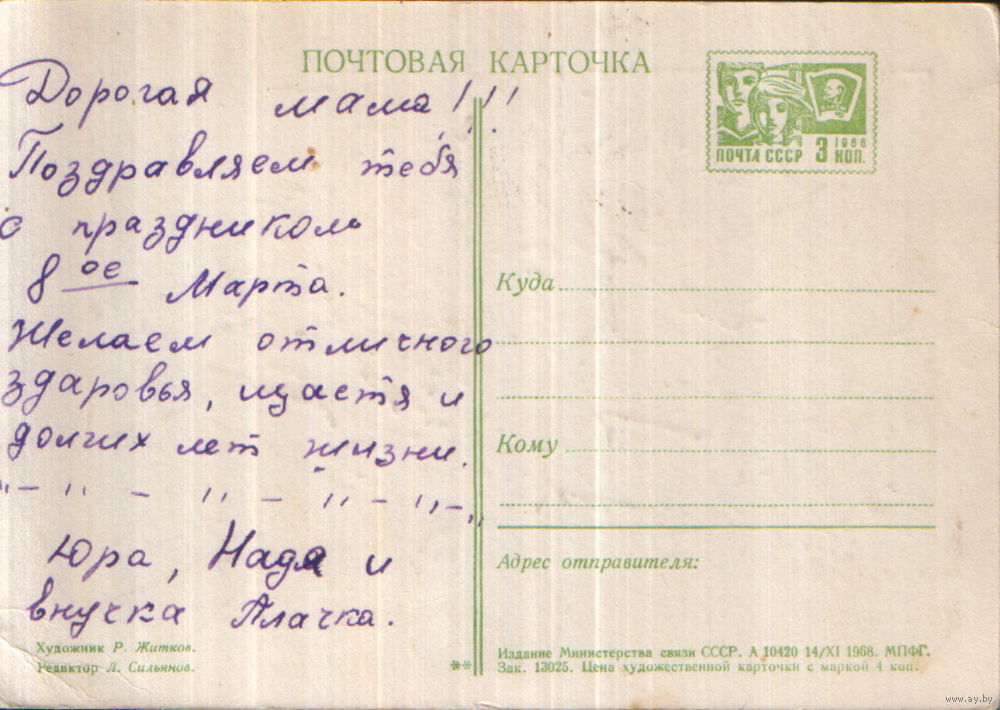 ПОЧТОВАЯ КАРТОЧКА
Дорогая мама!!!
Поздравляем тебя
с праздником
8 ое Марта.
Желаем отличного
здаровья, щастя и
долгих лет жизни.
„ – „ – „ – „ – „ – „
Юра, Надя и
внучка Алачка.
Художник Р. Житков.
Редактор Л. Сильянов.
ПОЧТА СССР 3 КОП.
1966
Куда
Кому
Адрес отправителя:
** Издание Министерства связи СССР. А 10420 14/XI 1968. МПФГ.
Зак. 13025. Цена художественной карточки с маркой 4 коп.
www.ay.by